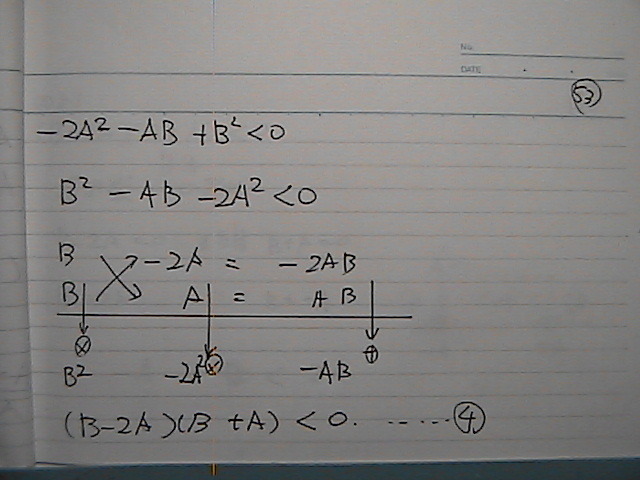 No.
DATE . .
53
-2A² - AB + B² < 0
B² - AB - 2A² < 0
B -2A = -2AB
B A = AB
⊗ ⊗ ⊕
B² -2A² -AB
(B-2A)(B+A) < 0. ...... ④